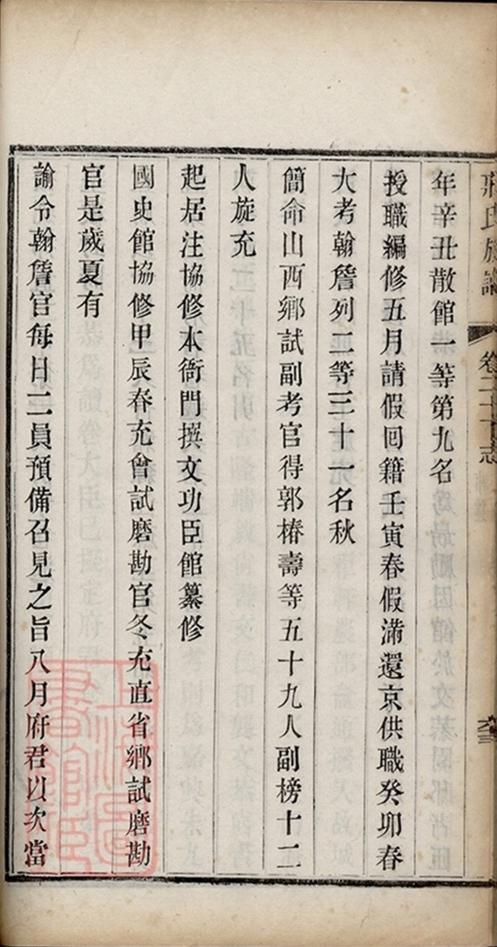 莊氏族譜 卷二十志 六三
年辛丑散館一等第九名
授職編修五月請假回籍壬寅春假滿還京供職癸卯春
大考翰詹列二等三十一名秋
簡命山西鄉試副考官得郭椿壽等五十九人副榜十二
人旋充
起居注協修本衙門撰文功臣館纂修
國史館協修甲辰春充會試磨勘官冬充直省鄉試磨勘
官是歲夏有
諭令翰詹官每日二員預備召見之旨八月府君以次當